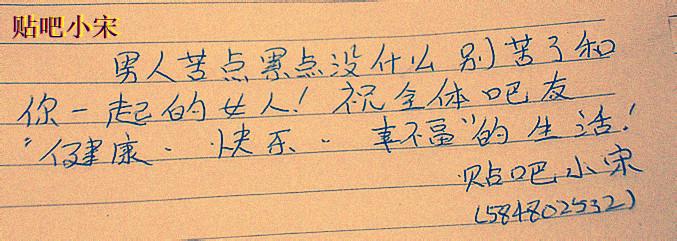 贴吧小宋
男人苦点累点没什么别苦了和
你一起的女人!祝全体吧友
"健康·快乐·幸福"的生活!
贴吧小宋
(584802532)